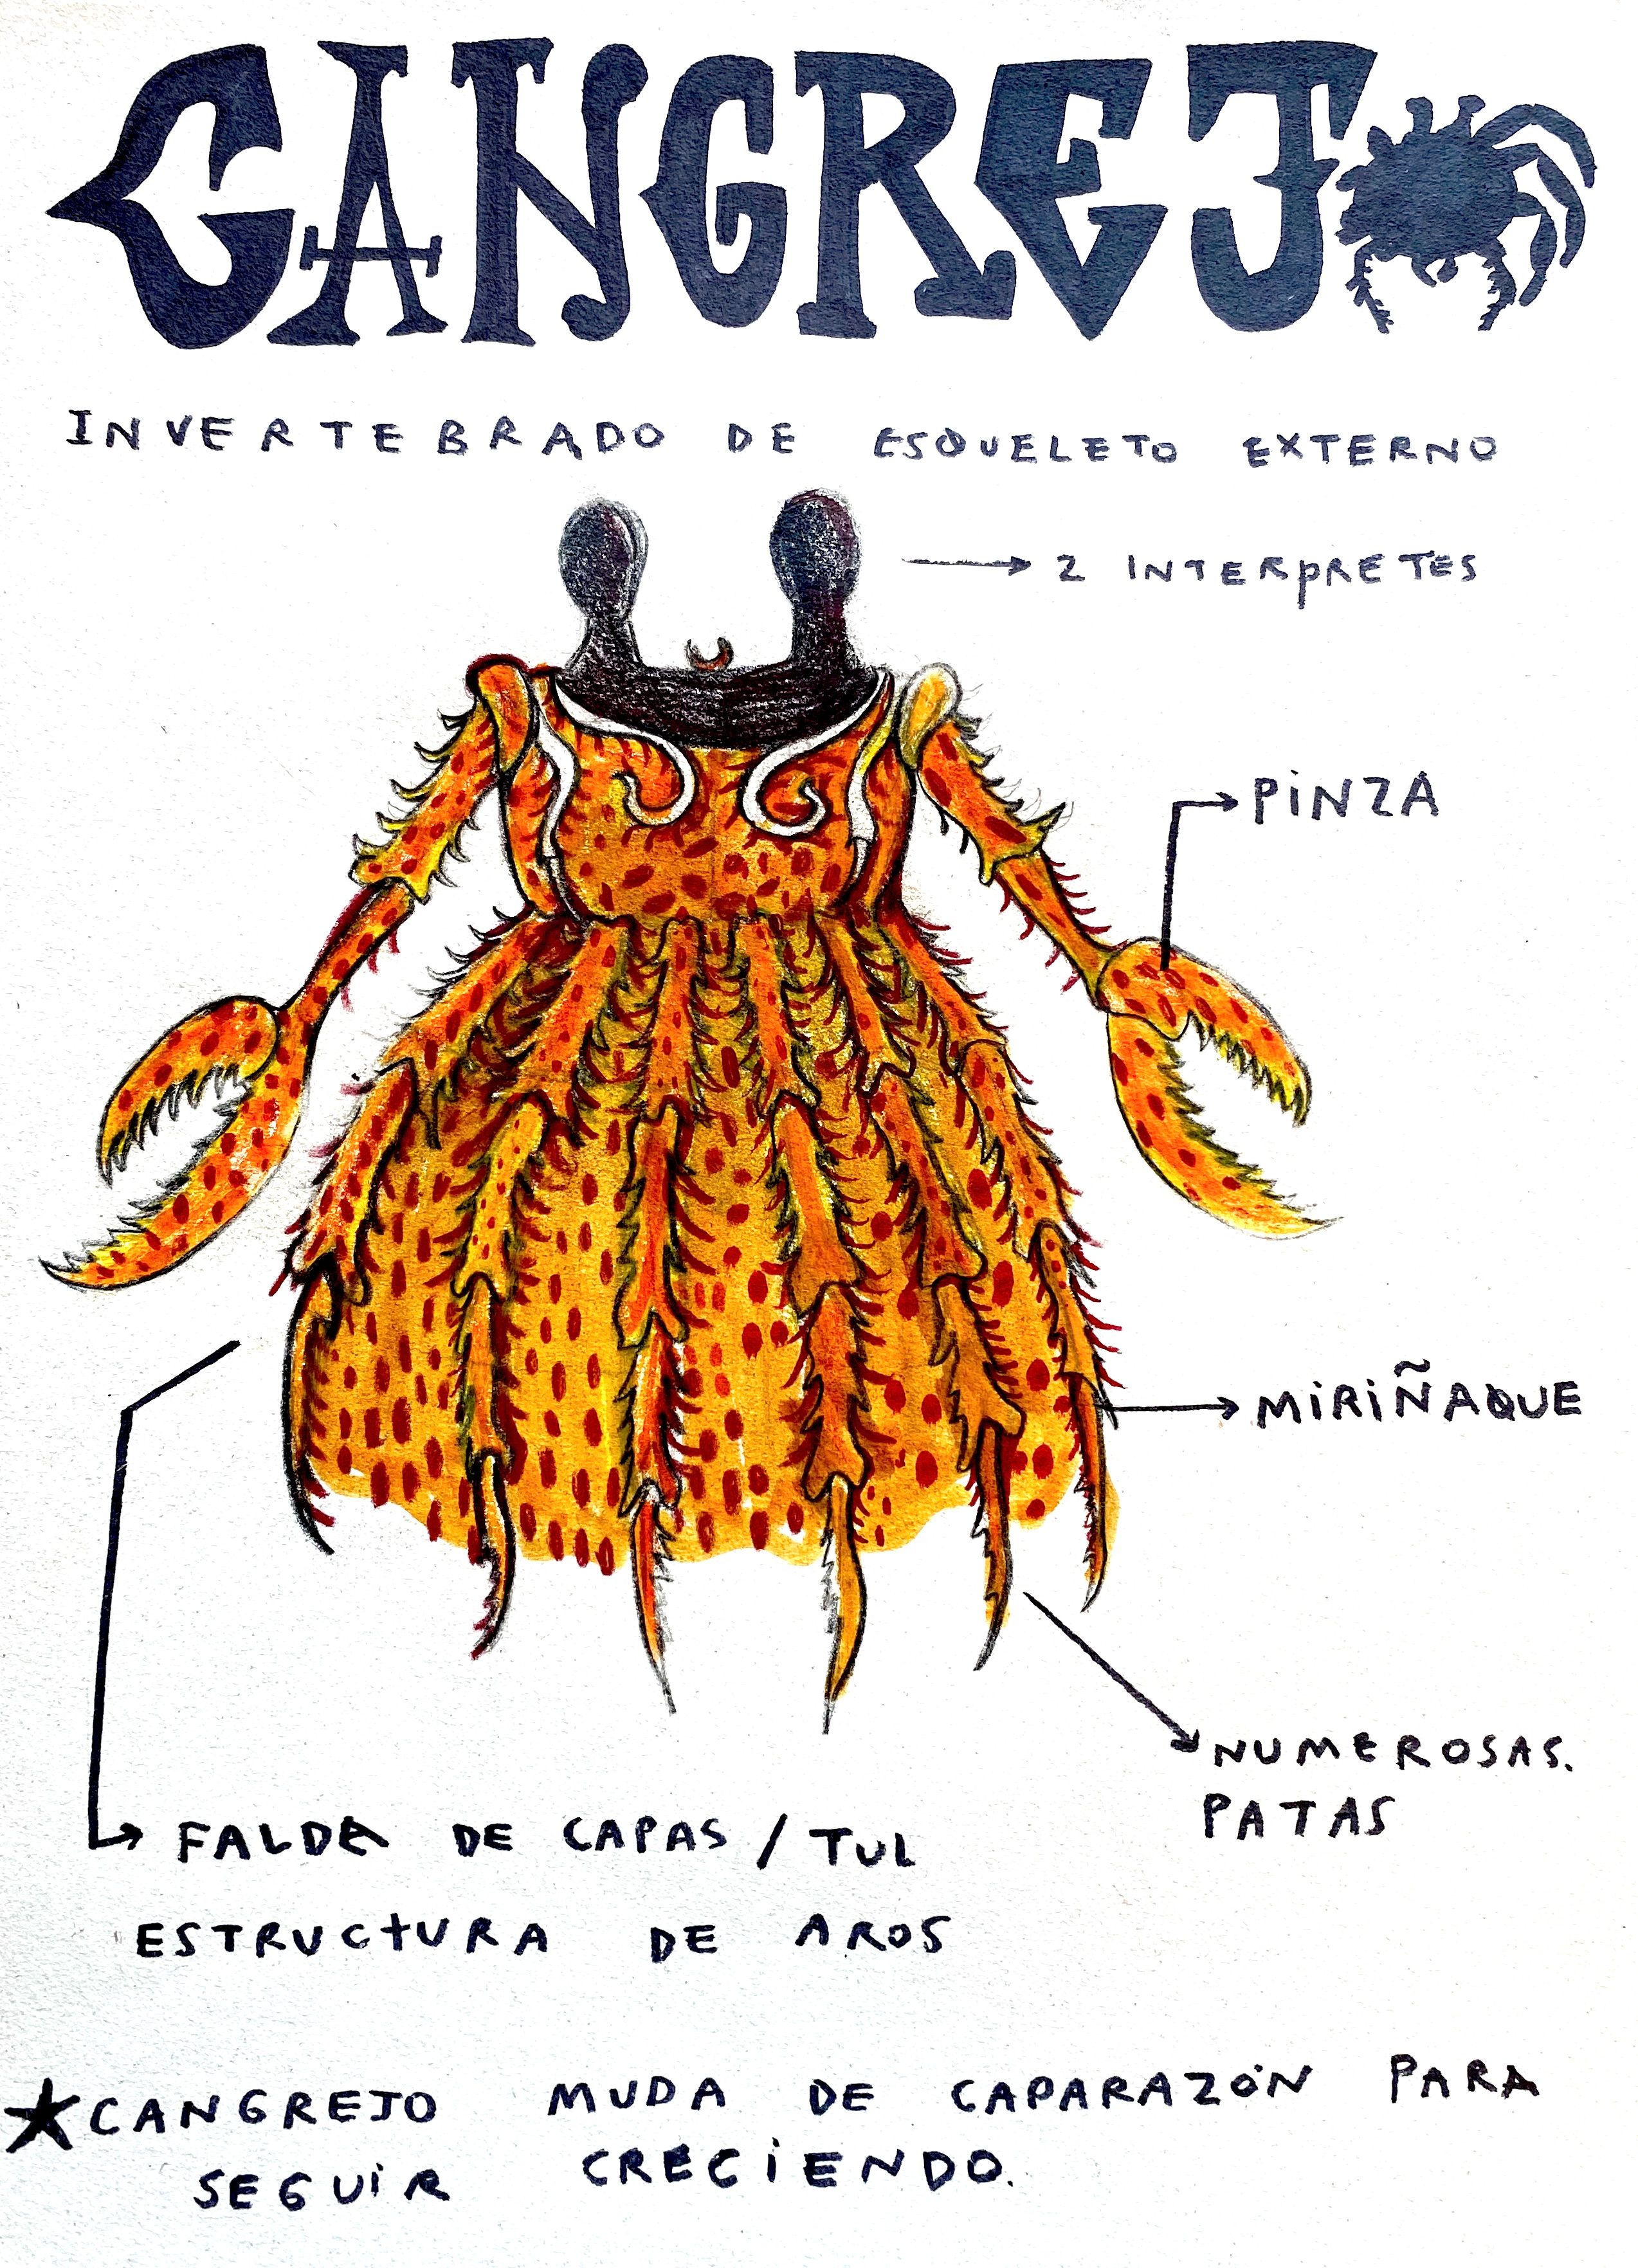 CANGREJ
INVERTEBRADO DE ESQUELETO EXTERNO
2 INTERpRETES
PiNZA
MiRiÑAQUE
NUMEROSAS.
PATAS
FALDA DE CAPAS / TUL
ESTRUCtURA DE AROS
CANGREJO MUDA DE CAPARAZÓN PARA
SEGUiR CRECiENDO.